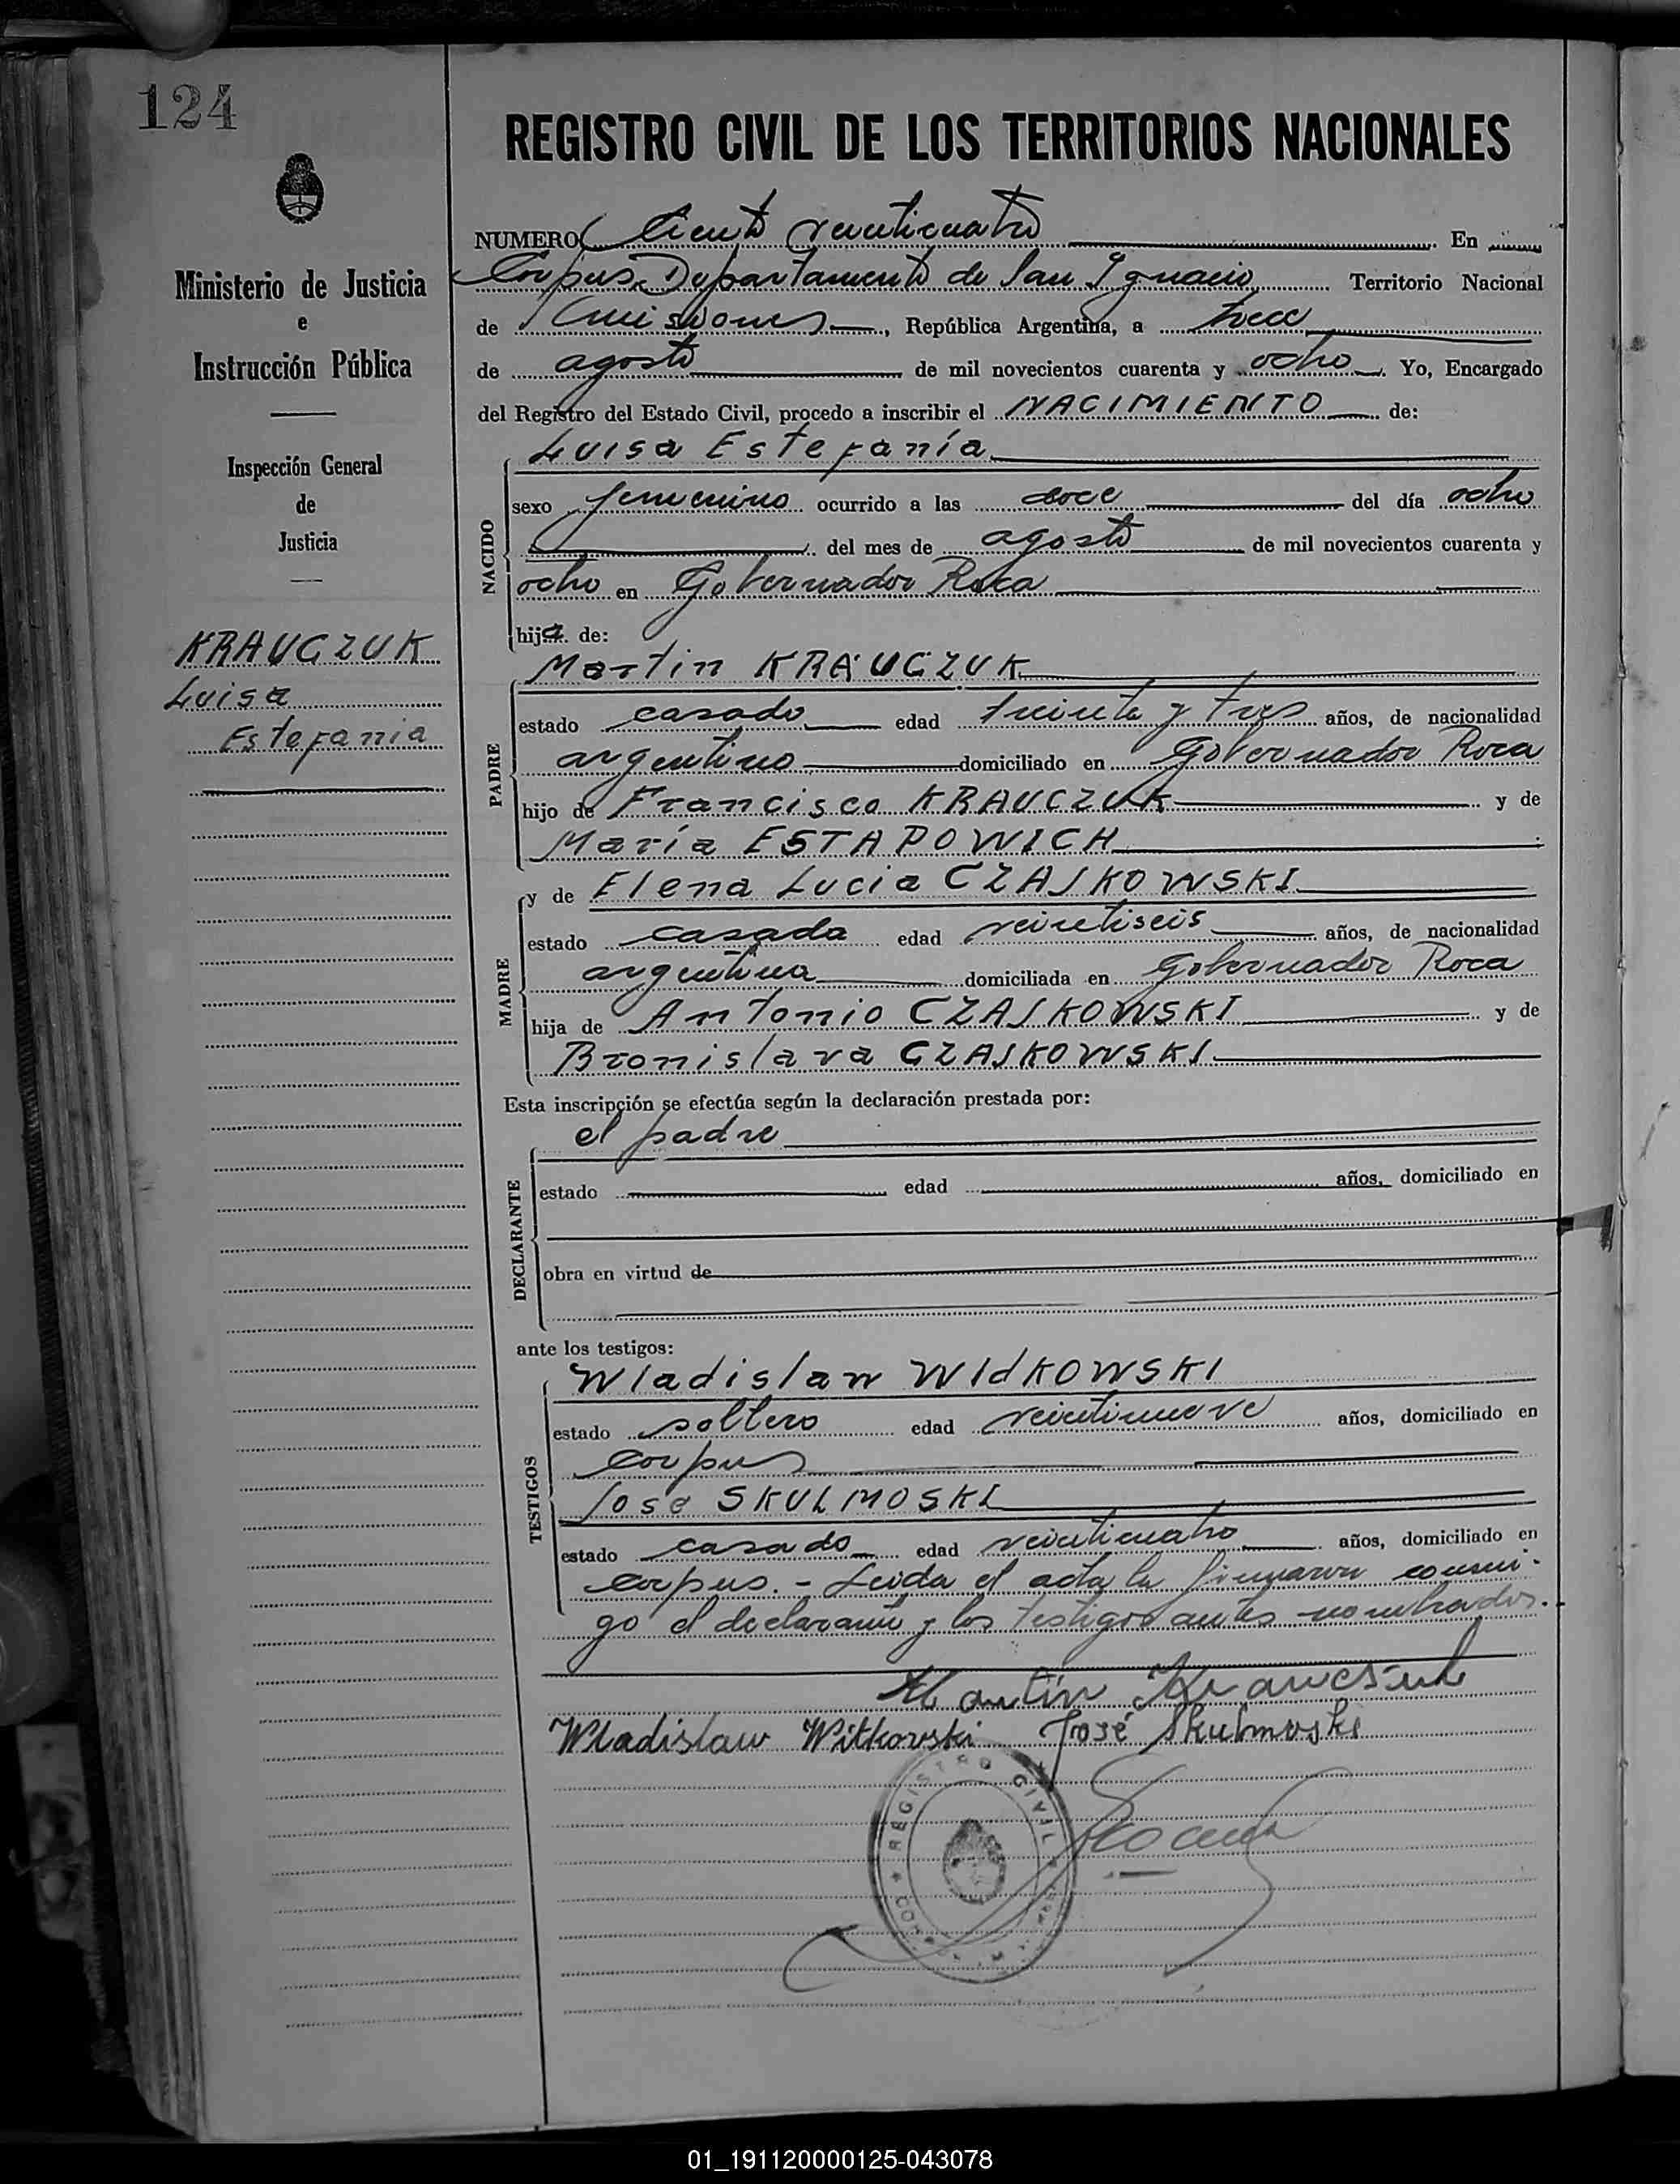 124
REGISTRO CIVIL DE LOS TERRITORIOS NACIONALES
Ministerio de Justicia
e
Instrucción Pública
Inspección General
de
Justicia
KRAUCZUK
Luisa
Estefania
NUMERO Ciento veinticuatro En
Corpus Departamento de San Ignacio Territorio Nacional
de Misiones, República Argentina, a trece
de agosto de mil novecientos cuarenta y ocho. Yo, Encargado
del Registro del Estado Civil, procedo a inscribir el NACIMIENTO de:
Luisa Estefanía
NACIDO
sexo femenino ocurrido a las doce del día ocho
del mes de agosto de mil novecientos cuarenta y
ocho en Gobernador Roca
hija de:
Martin KRAUCZUK
PADRE
estado casado edad treinta y tres años, de nacionalidad
argentino domiciliado en Gobernador Roca
hijo de Francisco KRAUCZUK y de
María ESTAPOWICH
y de Elena Lucia CZAJKOWSKI
MADRE
estado casada edad veintiseis años, de nacionalidad
argentina domiciliada en Gobernador Roca
hija de Antonio CZAJKOWSKI y de
Bronislava CZAJKOWSKI
Esta inscripción se efectúa según la declaración prestada por:
el padre
DECLARANTE
estado edad años, domiciliado en
obra en virtud de
ante los testigos:
Wladislaw WIdKOWSKI
TESTIGOS
estado soltero edad veintinueve años, domiciliado en
Corpus
Jose SKULMOSKI
estado casado edad veinticuatro años, domiciliado en
Corpus. - Leida el acta la firmaron conmi-
go el declarante y los testigos antes nombrados.
Martín Kraucsuk
Wladislaw Witkowski José Skulmoski
REGISTRO CIVIL
01_191120000125-043078